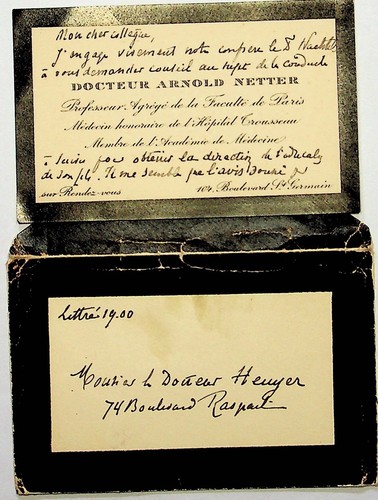 Mon cher collègue,
J'engage vivement notre confrère le Dr
à vous demander conseil au sujet de la conduite
DOCTEUR ARNOLD NETTER
Professeur Agrégé de la Faculté de Paris
Médecin honoraire de l'Hôpital Trousseau
Membre de l'Académie de Médecine
à suivre pour obtenir la direction de
de son fils Il me semble que l'avis donné
sur Rendez-vous 104, Boulevard St Germain
19.00
Monsieur le Docteur Heuyer
74 Boulevard Raspail